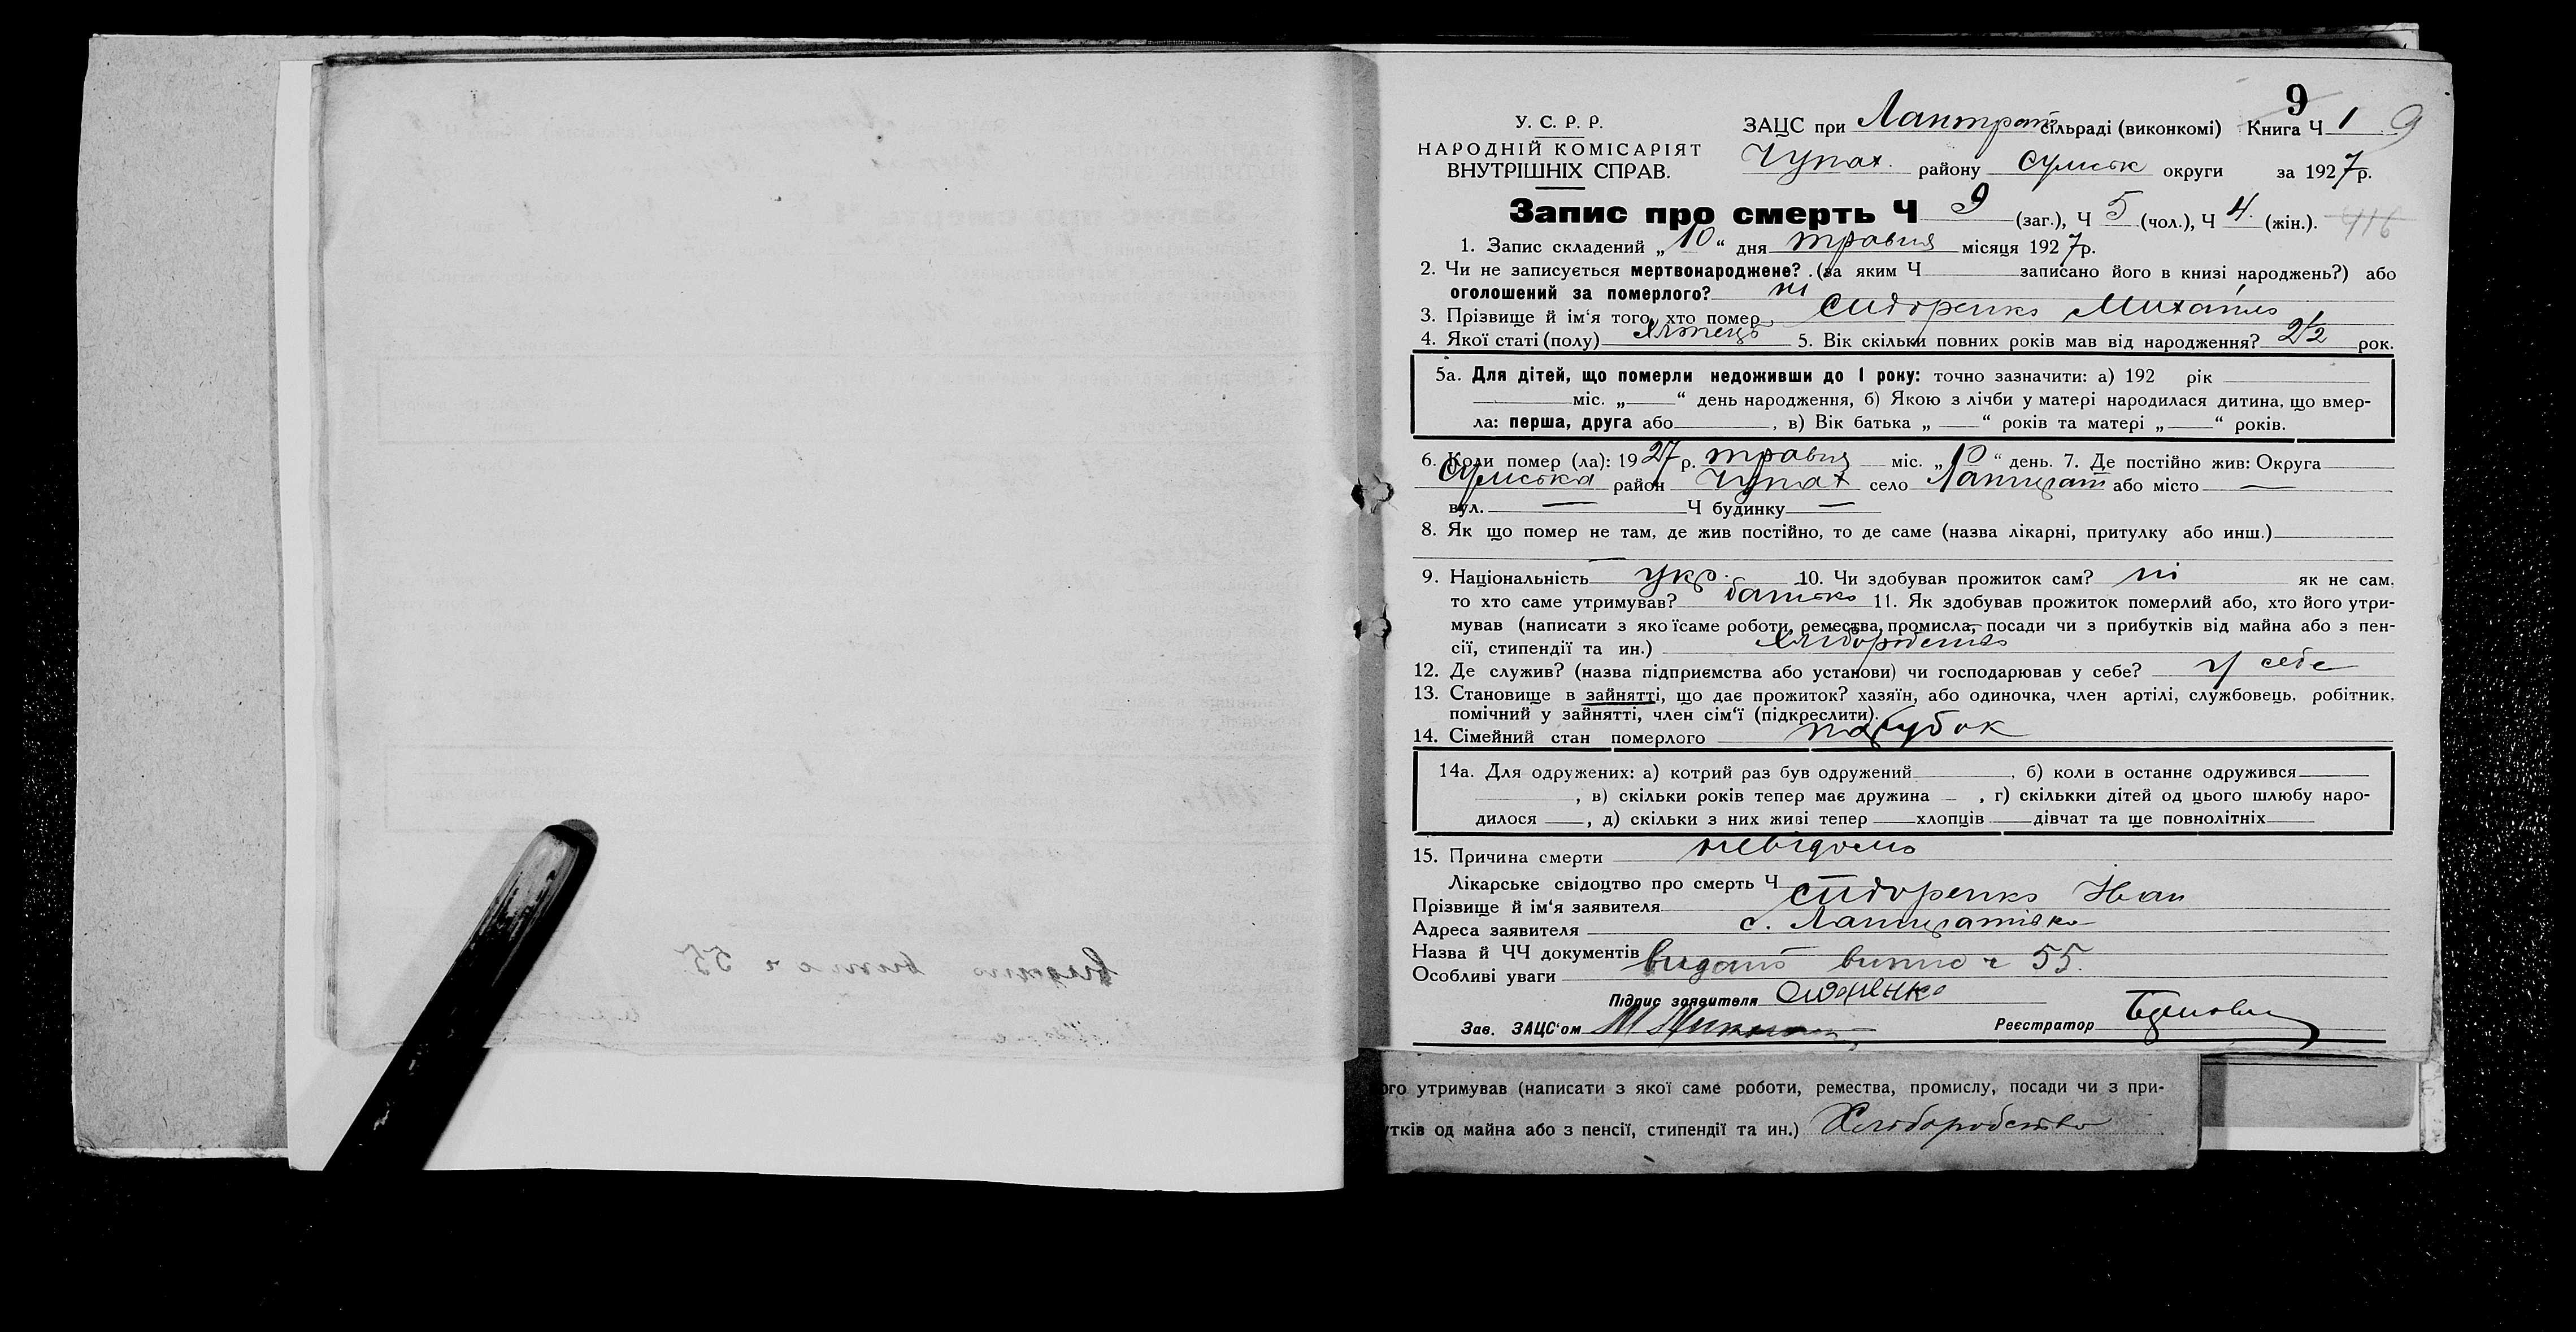 9
У. С. Р. Р.
НАРОДНІЙ КОМІСАРІЯТ
ВНУТРІШНІХ СПРАВ.
ЗАЦС при Лантрат сільраді (виконкомі) Книга Ч 1 9
Чупах. району Сумськ округи за 1927 р.
Запис про смерть Ч 9 (заг.), Ч 5 (чол.), Ч 4. (жін.). 416
1. Запис складений „ 10 “ дня травня місяця 1927 р.
2. Чи не записується мертвонароджене? (за яким Ч записано його в книзі народжень?) або
оголошений за померлого? ні
3. Прізвище й ім‘я того, хто помер Сидоренко Михайло
4. Якої статі (полу) хлопець 5. Вік скільки повних років мав від народження? 2 1/2 рок.
5а. Для дітей, що померли недоживши до 1 року: точно зазначити: а) 192 рік
міс. „ “ день народження, б) Якою з лічби у матері народилася дитина, що вмер-
ла: перша, друга або , в) Вік батька „ “ років та матері „ “ років.
6. Коли помер (ла): 1927 р. травня міс. „ 10 “ день. 7. Де постійно жив: Округа
Сумська район Чупах село Лантрат або місто —
вул. — Ч будинку —
8. Як що помер не там, де жив постійно, то де саме (назва лікарні, притулку або инш.)
—
9. Національність укр. 10. Чи здобував прожиток сам? ні як не сам.
то хто саме утримував? батько 11. Як здобував прожиток померлий або, хто його утри-
мував (написати з яко їсаме роботи, ремества, промисла, посади чи з прибутків від майна або з пен-
сії, стипендії та ин.) хліборобство
12. Де служив? (назва підприємства або установи) чи господарював у себе? у себе
13. Становище в зайнятті, що дає прожиток? хазяїн, або одиночка, член артілі, службовець, робітник,
помічний у зайнятті, член сім‘ї (підкреслити).
14. Сімейний стан померлого парубок
14а. Для одружених: а) котрий раз був одружений , б) коли в останнє одружився
, в) скільки років тепер має дружина — , г) скількки дітей од цього шлюбу наро-
дилося , д) скільки з них живі тепер хлопців дівчат та ще повнолітніх
15. Причина смерти невідомо
Лікарське свідоцтво про смерть Ч —
Прізвище й ім‘я заявителя Сидоренко Іван
Адреса заявителя с. Лантратівка
Назва й ЧЧ документів
Особливі уваги видано випис ч 55.
Підпис заявителя
Зав. ЗАЦС‘ом М Реєстратор
ого утримував (написати з якої саме роботи, ремества, промислу, посади чи з при-
тків од майна або з пенсії, стипендії та ин.) Хліборобство